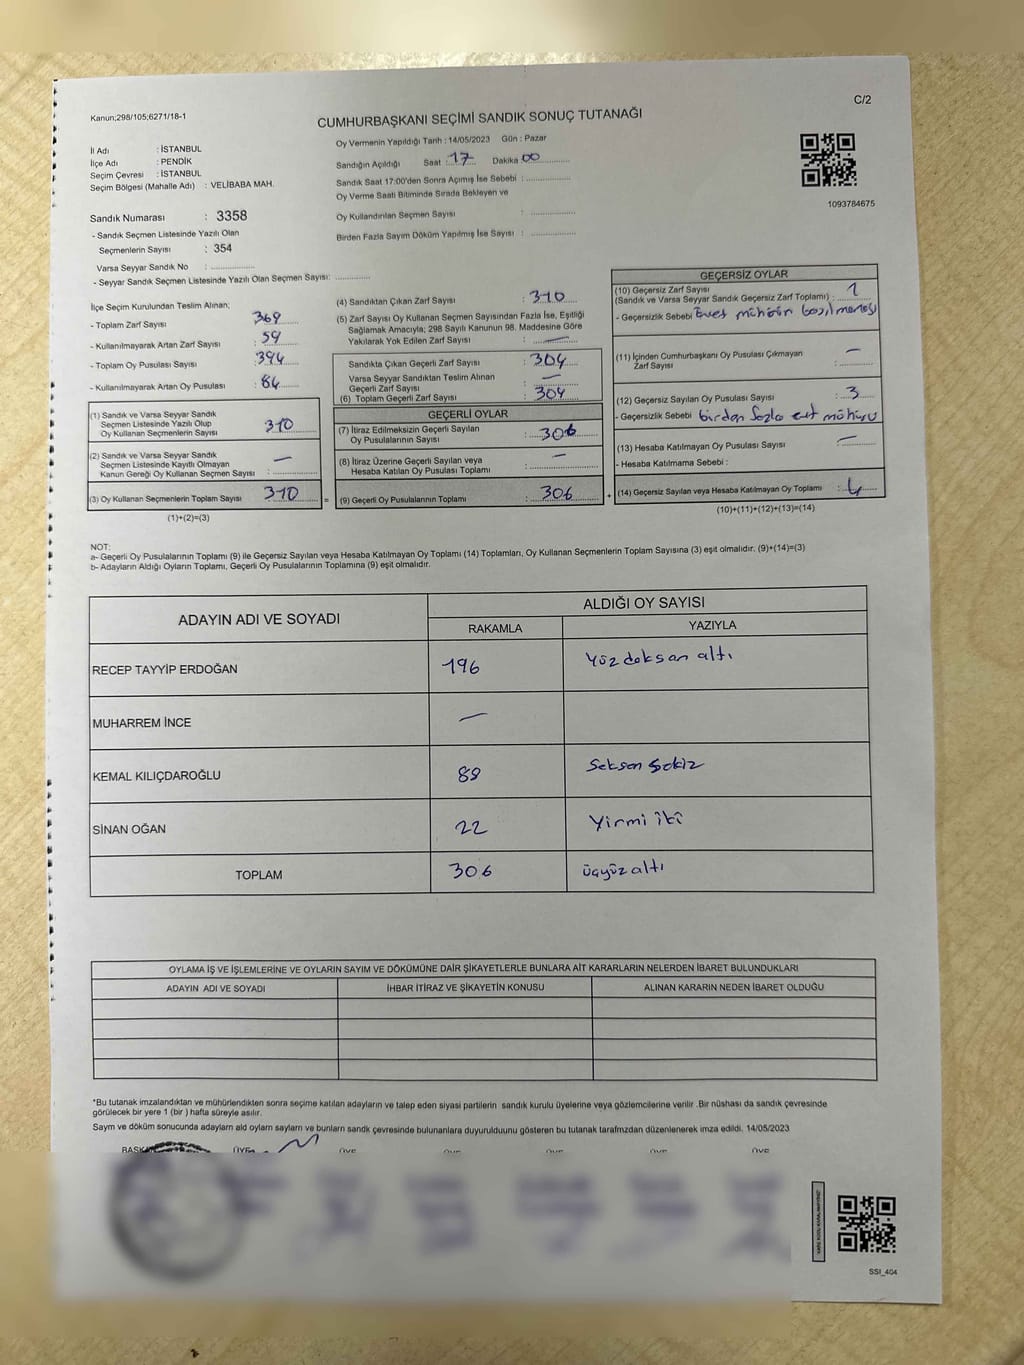 C/2
Kanun;298/105;6271/18-1
CUMHURBAŞKANI SEÇİMİ SANDIK SONUÇ TUTANAĞI
İl Adı : İSTANBUL
İlçe Adı : PENDİK
Seçim Çevresi : İSTANBUL
Seçim Bölgesi (Mahalle Adı) : VELİBABA MAH.
Sandık Numarası : 3358
- Sandık Seçmen Listesinde Yazılı Olan
Seçmenlerin Sayısı : 354
Varsa Seyyar Sandık No :
- Seyyar Sandık Seçmen Listesinde Yazılı Olan Seçmen Sayısı:
Oy Vermenin Yapıldığı Tarih : 14/05/2023 Gün : Pazar
Sandığın Açıldığı Saat : 17 Dakika : 00
Sandık Saat 17:00'den Sonra Açımış İse Sebebi :
Oy Verme Saati Bitiminde Sırada Bekleyen ve
Oy Kullandırılan Seçmen Sayısı :
Birden Fazla Sayım Döküm Yapılmış İse Sayısı :
1093784675
İlçe Seçim Kurulundan Teslim Alınan;
- Toplam Zarf Sayısı : 369
- Kullanılmayarak Artan Zarf Sayısı : 59
- Toplam Oy Pusulası Sayısı : 394
- Kullanılmayarak Artan Oy Pusulası : 84
(1) Sandık ve Varsa Seyyar Sandık
Seçmen Listesinde Yazılı Olup
Oy Kullanan Seçmenlerin Sayısı : 310
(2) Sandık ve Varsa Seyyar Sandık
Seçmen Listesinde Kayıtlı Olmayan
Kanun Gereği Oy Kullanan Seçmen Sayısı : —
(3) Oy Kullanan Seçmenlerin Toplam Sayısı : 310
(1)+(2)=(3)
(4) Sandıktan Çıkan Zarf Sayısı : 310
(5) Zarf Sayısı Oy Kullanan Seçmen Sayısından Fazla İse, Eşitliği
Sağlamak Amacıyla; 298 Sayılı Kanunun 98. Maddesine Göre
Yakılarak Yok Edilen Zarf Sayısı : —
Sandıkta Çıkan Geçerli Zarf Sayısı : 304
Varsa Seyyar Sandıktan Teslim Alınan
Geçerli Zarf Sayısı : —
(6) Toplam Geçerli Zarf Sayısı : 304
GEÇERLİ OYLAR
(7) İtiraz Edilmeksizin Geçerli Sayılan
Oy Pusulalarının Sayısı : 306
(8) İtiraz Üzerine Geçerli Sayılan veya
Hesaba Katılan Oy Pusulası Toplamı : —
= (9) Geçerli Oy Pusulalarının Toplamı : 306
GEÇERSİZ OYLAR
(10) Geçersiz Zarf Sayısı
(Sandık ve Varsa Seyyar Sandık Geçersiz Zarf Toplamı) : 1
- Geçersizlik Sebebi : Evet mührün basılmaması
(11) İçinden Cumhurbaşkanı Oy Pusulası Çıkmayan
Zarf Sayısı : —
(12) Geçersiz Sayılan Oy Pusulası Sayısı : 3
- Geçersizlik Sebebi : birden fazla evet mührü
(13) Hesaba Katılmayan Oy Pusulası Sayısı : —
- Hesaba Katılmama Sebebi :
+ (14) Geçersiz Sayılan veya Hesaba Katılmayan Oy Toplamı : 4
(10)+(11)+(12)+(13)=(14)
NOT:
a- Geçerli Oy Pusulalarının Toplamı (9) ile Geçersiz Sayılan veya Hesaba Katılmayan Oy Toplamı (14) Toplamları, Oy Kullanan Seçmenlerin Toplam Sayısına (3) eşit olmalıdır. (9)+(14)=(3)
b- Adayların Aldığı Oyların Toplamı, Geçerli Oy Pusulalarının Toplamına (9) eşit olmalıdır.
ADAYIN ADI VE SOYADI ALDIĞI OY SAYISI
RAKAMLA YAZIYLA
RECEP TAYYİP ERDOĞAN 196 Yüz doksan altı
MUHARREM İNCE —
KEMAL KILIÇDAROĞLU 88 Seksen sekiz
SİNAN OĞAN 22 Yirmi iki
TOPLAM 306 üçyüz altı
OYLAMA İŞ VE İŞLEMLERİNE VE OYLARIN SAYIM VE DÖKÜMÜNE DAİR ŞİKAYETLERLE BUNLARA AİT KARARLARIN NELERDEN İBARET BULUNDUKLARI
ADAYIN ADI VE SOYADI İHBAR İTİRAZ VE ŞİKAYETİN KONUSU ALINAN KARARIN NEDEN İBARET OLDUĞU
*Bu tutanak imzalandıktan ve mühürlendikten sonra seçime katılan adayların ve talep eden siyasi partilerin sandık kurulu üyelerine veya gözlemcilerine verilir .Bir nüshası da sandık çevresinde
görülecek bir yere 1 (bir ) hafta süreyle asılır.
Sayım ve döküm sonucunda adayların ald oyların sayların ve bunların sandk çevresinde bulunanlara duyurulduunu gösteren bu tutanak tarafmzdan düzenlenerek imza edildi. 14/05/2023
ÜYE ÜYE ÜYE ÜYE ÜYE ÜYE
SSI_404